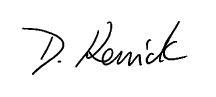 D. Kerrick